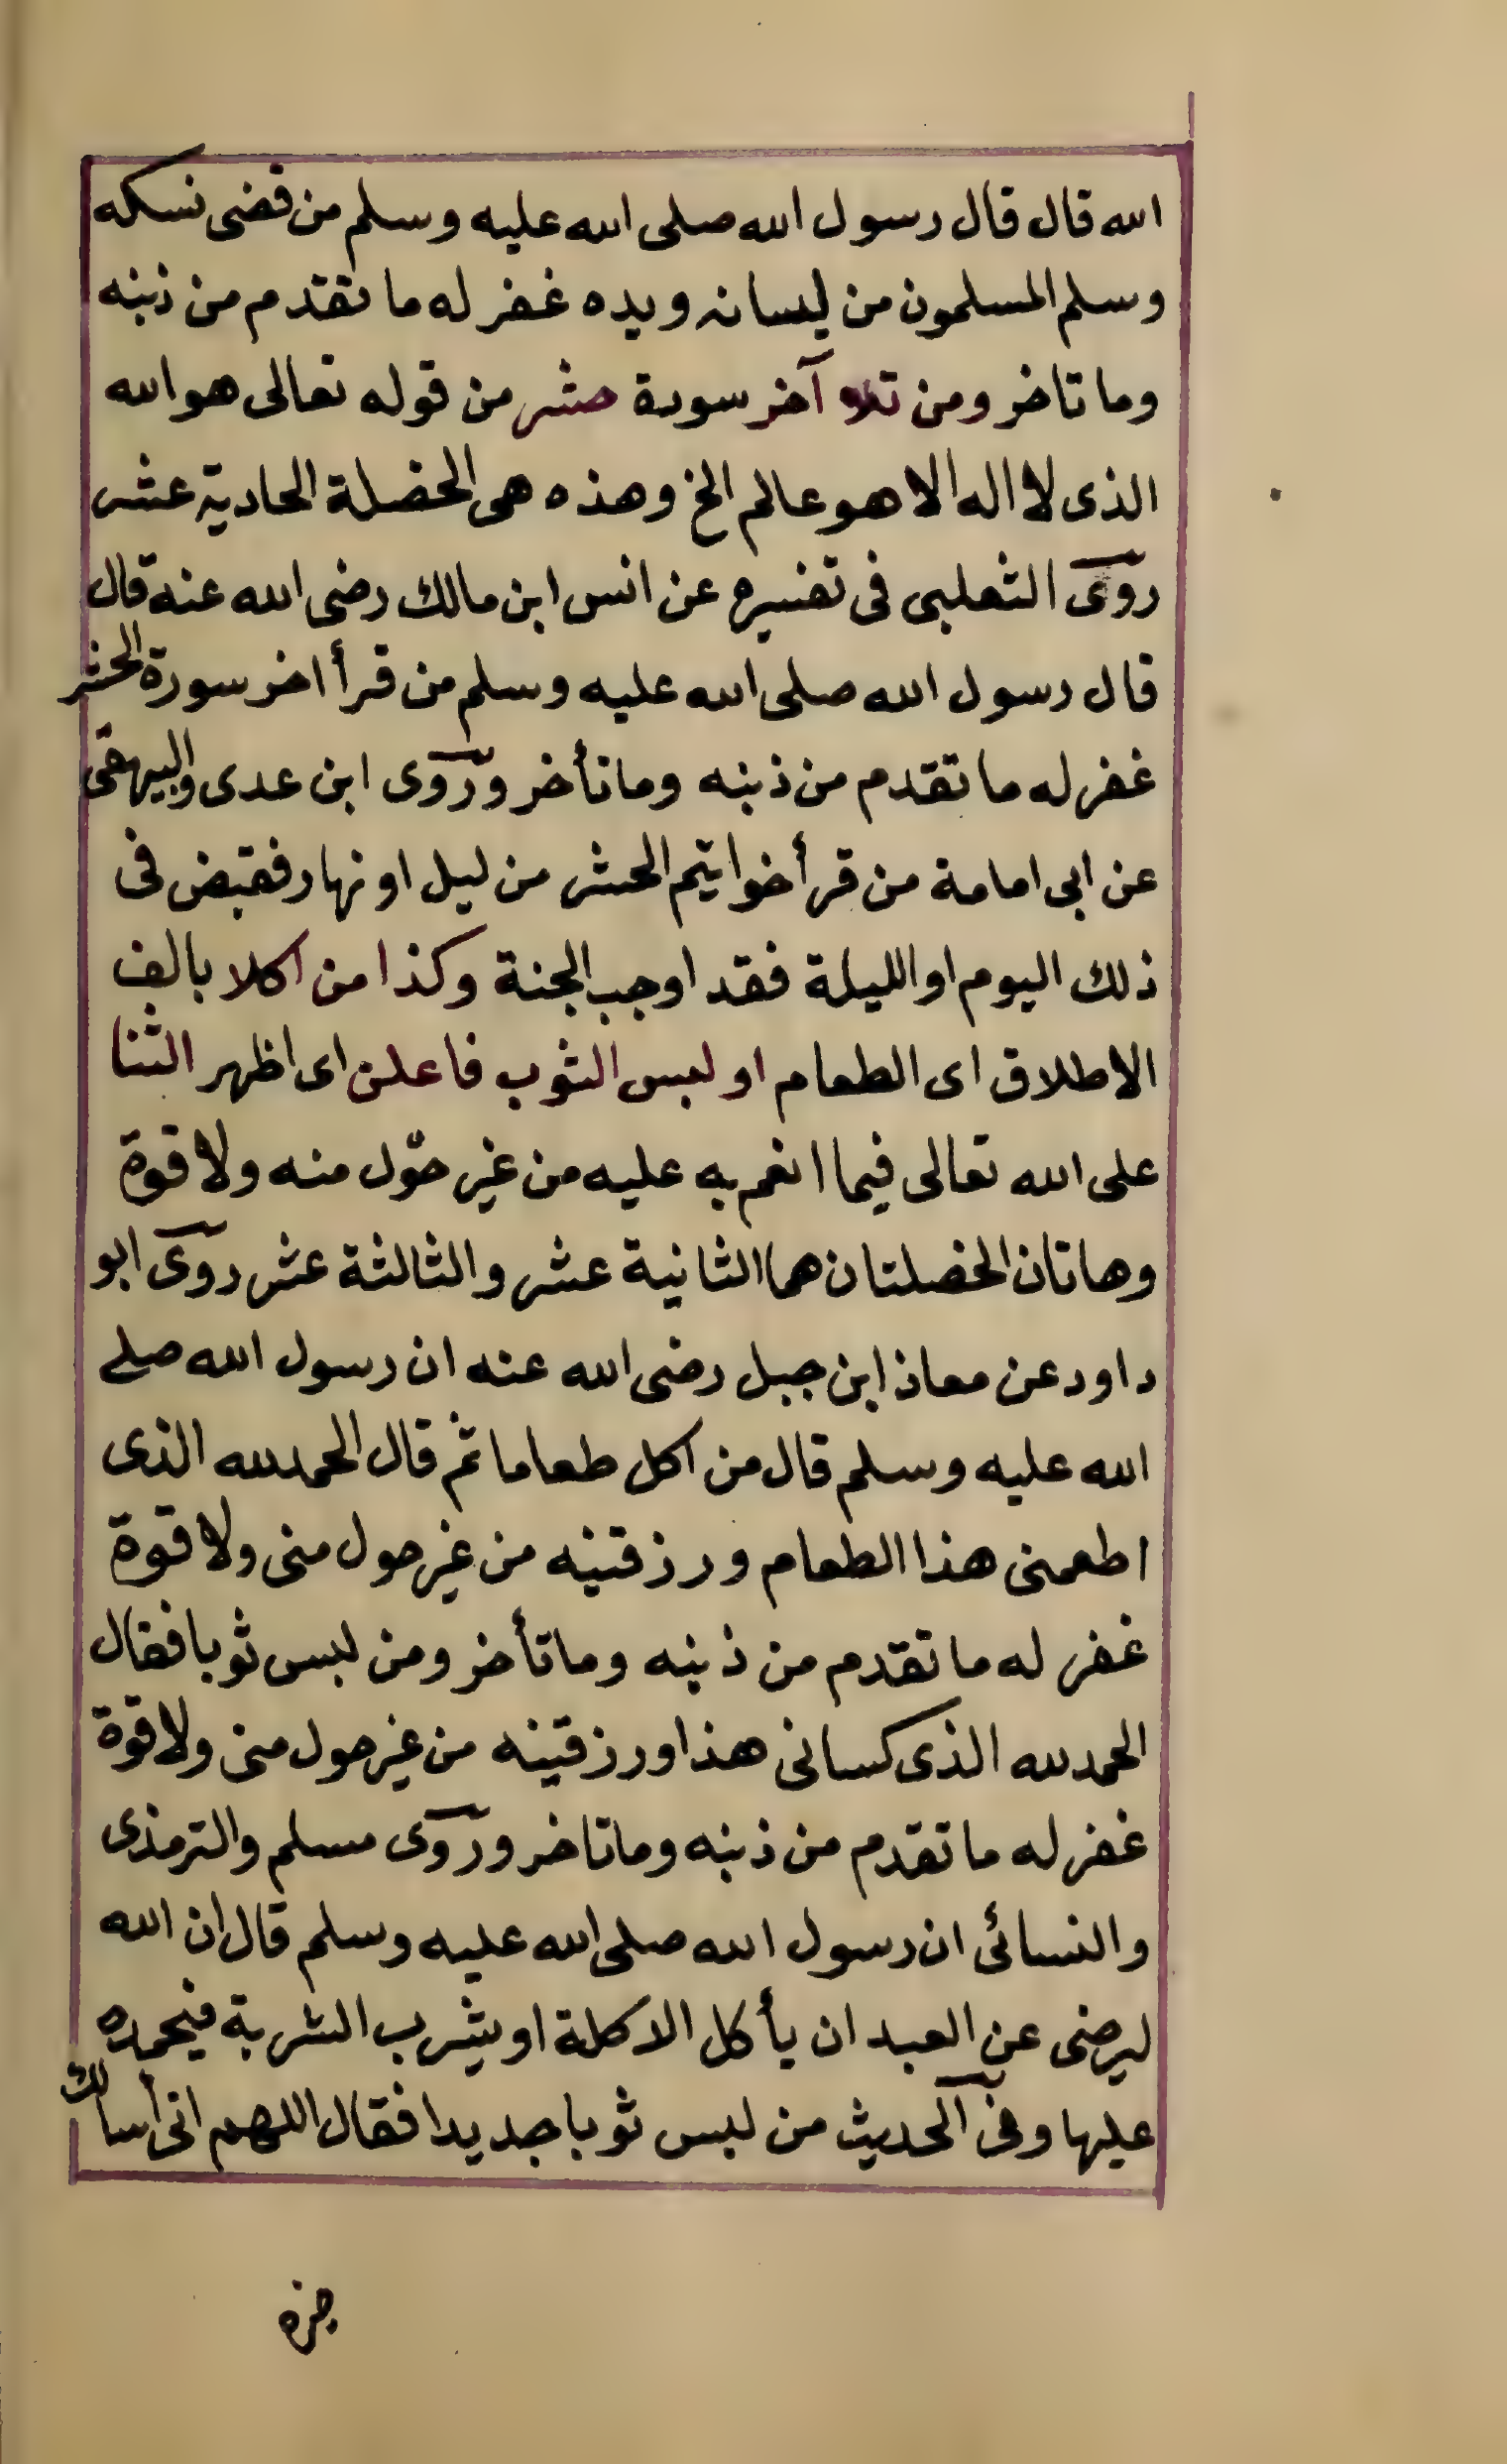 الله قال قال رسول الله صلى الله عليه وسلم من قضى نسكه
وسلم المسلمون من لسانه ويده غفر له ما تقدم من ذنبه
وما تاخر ومن تلا آخر سورة حشر من قوله تعالى هو الله
الذى لا اله الا هو عالم الخ وهذه هى الخصلة الحادية عشر
روى الثعلبى فى تفسيره عن انس ابن مالك رضى الله عنه قال
قال رسول الله صلى الله عليه وسلم من قرأ اخر سورة الحشر
غفر له ما تقدم من ذنبه وما تأخر وروى ابن عدى والبيهقى
عن ابى امامة من قرأ خواتيم الحشر من ليل او نهار فقبض فى
ذلك اليوم او الليلة فقد اوجب الجنة وكذا من اكلا بالف
الاطلاق اى الطعام او لبس الثوب فاعلن اى اظهر الثنا
على الله تعالى فيما انعم به عليه من غير حول منه ولا قوة
وهاتان الخصلتان هما الثانية عشر والثالثة عشر روى ابو
داود عن معاذ ابن جبل رضى الله عنه ان رسول الله صلى
الله عليه وسلم قال من اكل طعاما ثم قال الحمد لله الذى
اطعمنى هذا الطعام ورزقنيه من غير حول منى ولا قوة
غفر له ما تقدم من ذنبه وما تأخر ومن لبس ثوبا فقال
الحمد لله الذى كسانى هذا ورزقنيه من غير حول منى ولا قوة
غفر له ما تقدم من ذنبه وما تاخر وروى مسلم والترمذى
والنسائى ان رسول الله صلى الله عليه وسلم قال ان الله
ليرضى عن العبد ان يأكل الاكلة او يشرب الشربة فيحمده
عليها وفى الحديث من لبس ثوبا جديدا فقال اللهم انى أسالك